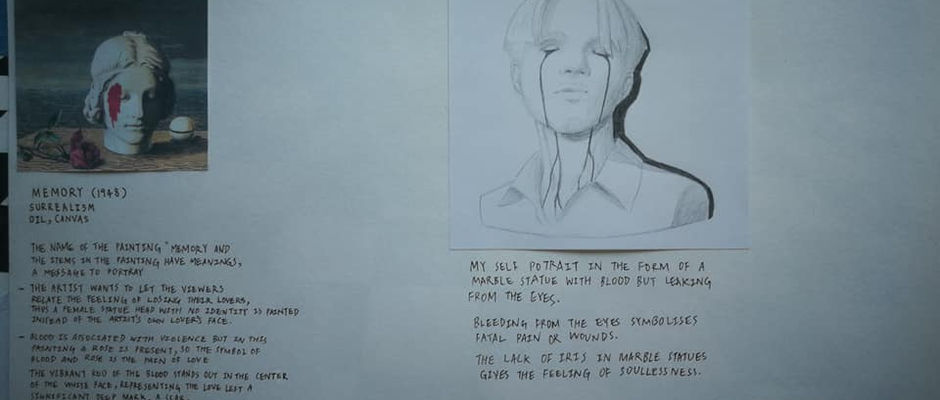 MEMORY (1948)
SURREALISM
OIL, CANVAS
THE NAME OF THE PAINTING "MEMORY AND
THE ITEMS IN THE PAINTING HAVE MEANINGS,
A MESSAGE TO PORTRAY
- THE ARTIST WANTS TO LET THE VIEWERS
RELATE THE FEELING OF LOSING THEIR LOVERS,
THUS A FEMALE STATUE HEAD WITH NO IDENTITY IS PAINTED
INSTEAD OF THE ARTIST'S OWN LOVER'S FACE.
- BLOOD IS ASSOCIATED WITH VIOLENCE BUT IN THIS
PAINTING A ROSE IS PRESENT, SO THE SYMBOL OF
BLOOD AND ROSE IS THE PAIN OF LOVE
THE VIBRANT RED OF THE BLOOD STANDS OUT IN THE CENTER
OF THE WHITE FACE, REPRESENTING THE LOVE LEFT A
SIGNIFICANT DEEP MARK, A SCAR.
MY SELF POTRAIT IN THE FORM OF A
MARBLE STATUE WITH BLOOD BUT LEAKING
FROM THE EYES.
BLEEDING FROM THE EYES SYMBOLISES
FATAL PAIN OR WOUNDS.
THE LACK OF IRIS IN MARBLE STATUES
GIVES THE FEELING OF SOULLESSNESS.